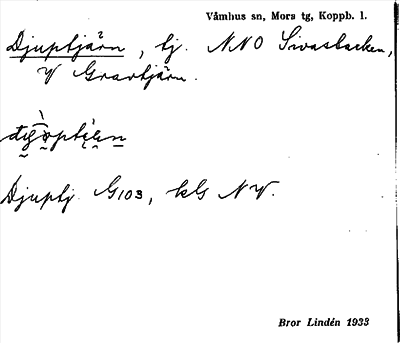 Våmhus sn, Mora tg, Koppb. l.
Djuptjärn, tj. NNO Sivasbacken,
V Gravtjärn.
Djuptj G103, kls NV.
Bror Lindén 1933